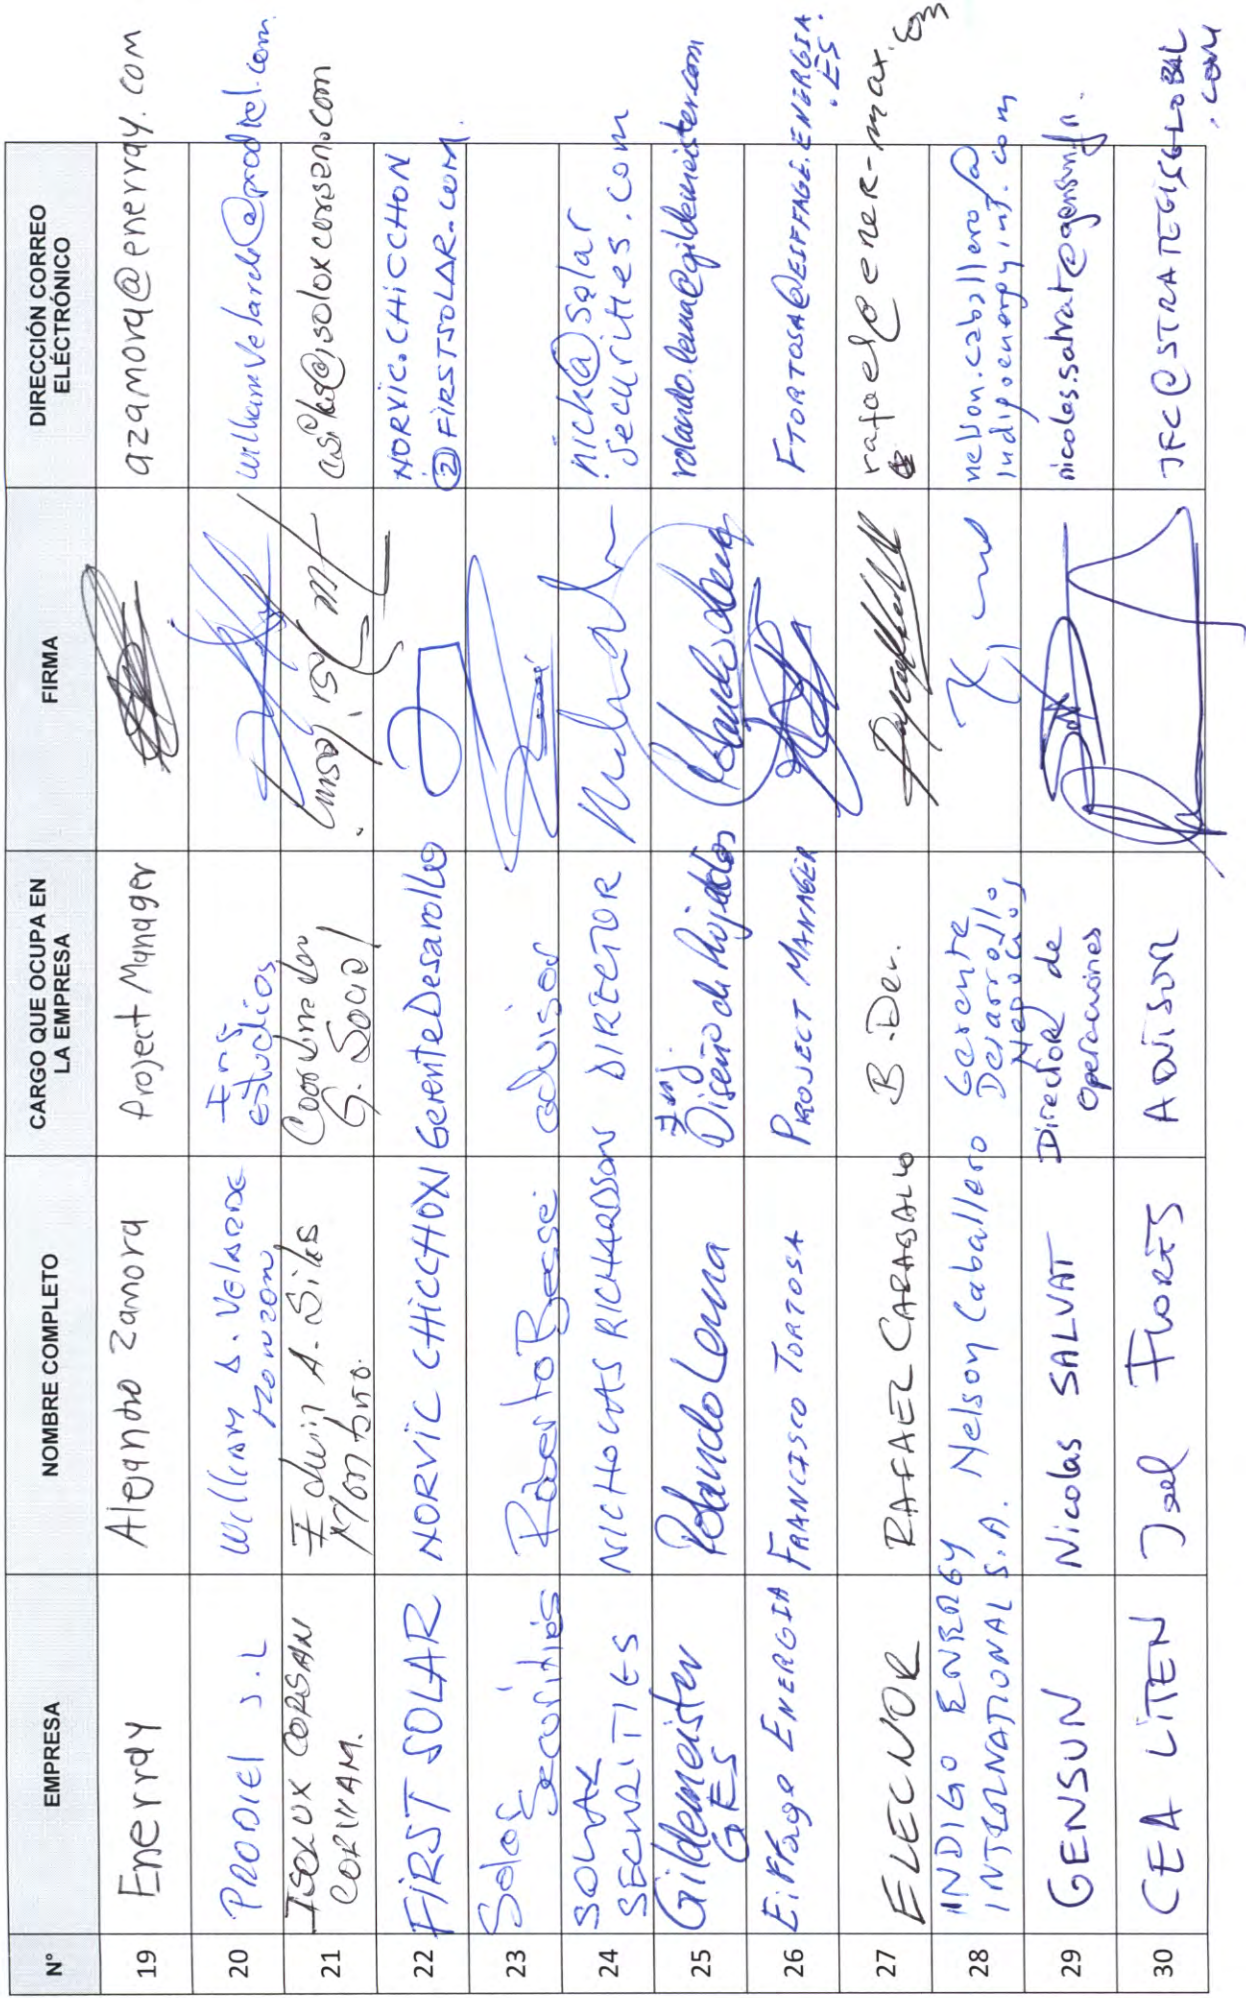 N° EMPRESA NOMBRE COMPLETO CARGO QUE OCUPA EN LA EMPRESA FIRMA DIRECCIÓN CORREO ELÉCTRÓNICO
19 Enerray Alejandro Zamora Project Manager azamora@enerray.com
20 PRODIEL S.L William D. Velarde Monzon Ing estudios william.velarde@prodiel.com
21 ISOLUX CORSAN CORVIAM. Edwin A. Siles Montaño. Coordinador G. Social
22 FIRST SOLAR NORVIC CHICCHON Gerente Desarollo NORVIC.CHICCHON @FIRSTSOLAR.COM.
23 Solar Securities Roberto advisor
24 SOLAR SECURITIES NICHOLAS RICHARDSON DIRECTOR nick@solar securities.com
25 Gildemeister GES Rolando Lema Ing. Diseño de Proyectos rolando.lema@gildemeister.com
26 Eiffage ENERGIA FRANCISCO TORTOSA PROJECT MANAGER FTORTOSA@EIFFAGE.ENERGIA .ES
27 ELECNOR RAFAEL CARABALLO B. Dev. rafael@ener-max.com
28 INDIGO ENERGY INTERNATIONAL S.A. Nelson Caballero Gerente Desarrollo Negocios nelson.caballero@ indigoenergyint.com
29 GENSUN Nicolas SALVAT Director de Operaciones nicolas.salvat@gensun.fr.
30 CEA LITEN Joel FLORES ADVISOR JFC@STRATEGISGLOBAL .COM